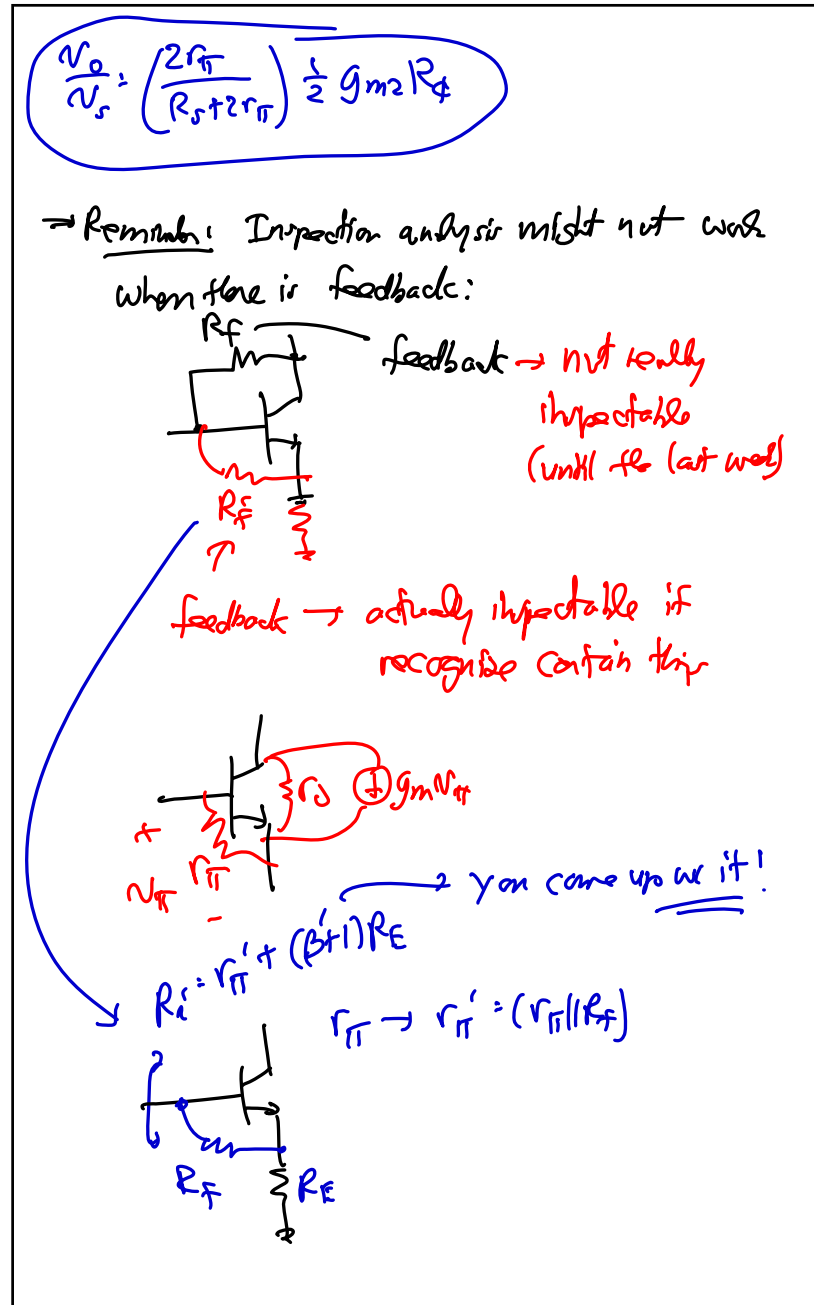 v_o/v_s = (2r_π/(R_s+2r_π)) 1/2 g_m2 R_¢
→ Remember: Inspection analysis might not work
when there is feedback:
R_f
feedback → not really
inspectable
(until the last week)
R_f'
feedback → actually inspectable if
recognize certain things
r_o g_m v_π
+
v_π r_π
-
→ you come up w/ it!
R_i' = r_π' + (β'+1)R_E
r_π → r_π' = (r_π||R_f)
R_F R_E